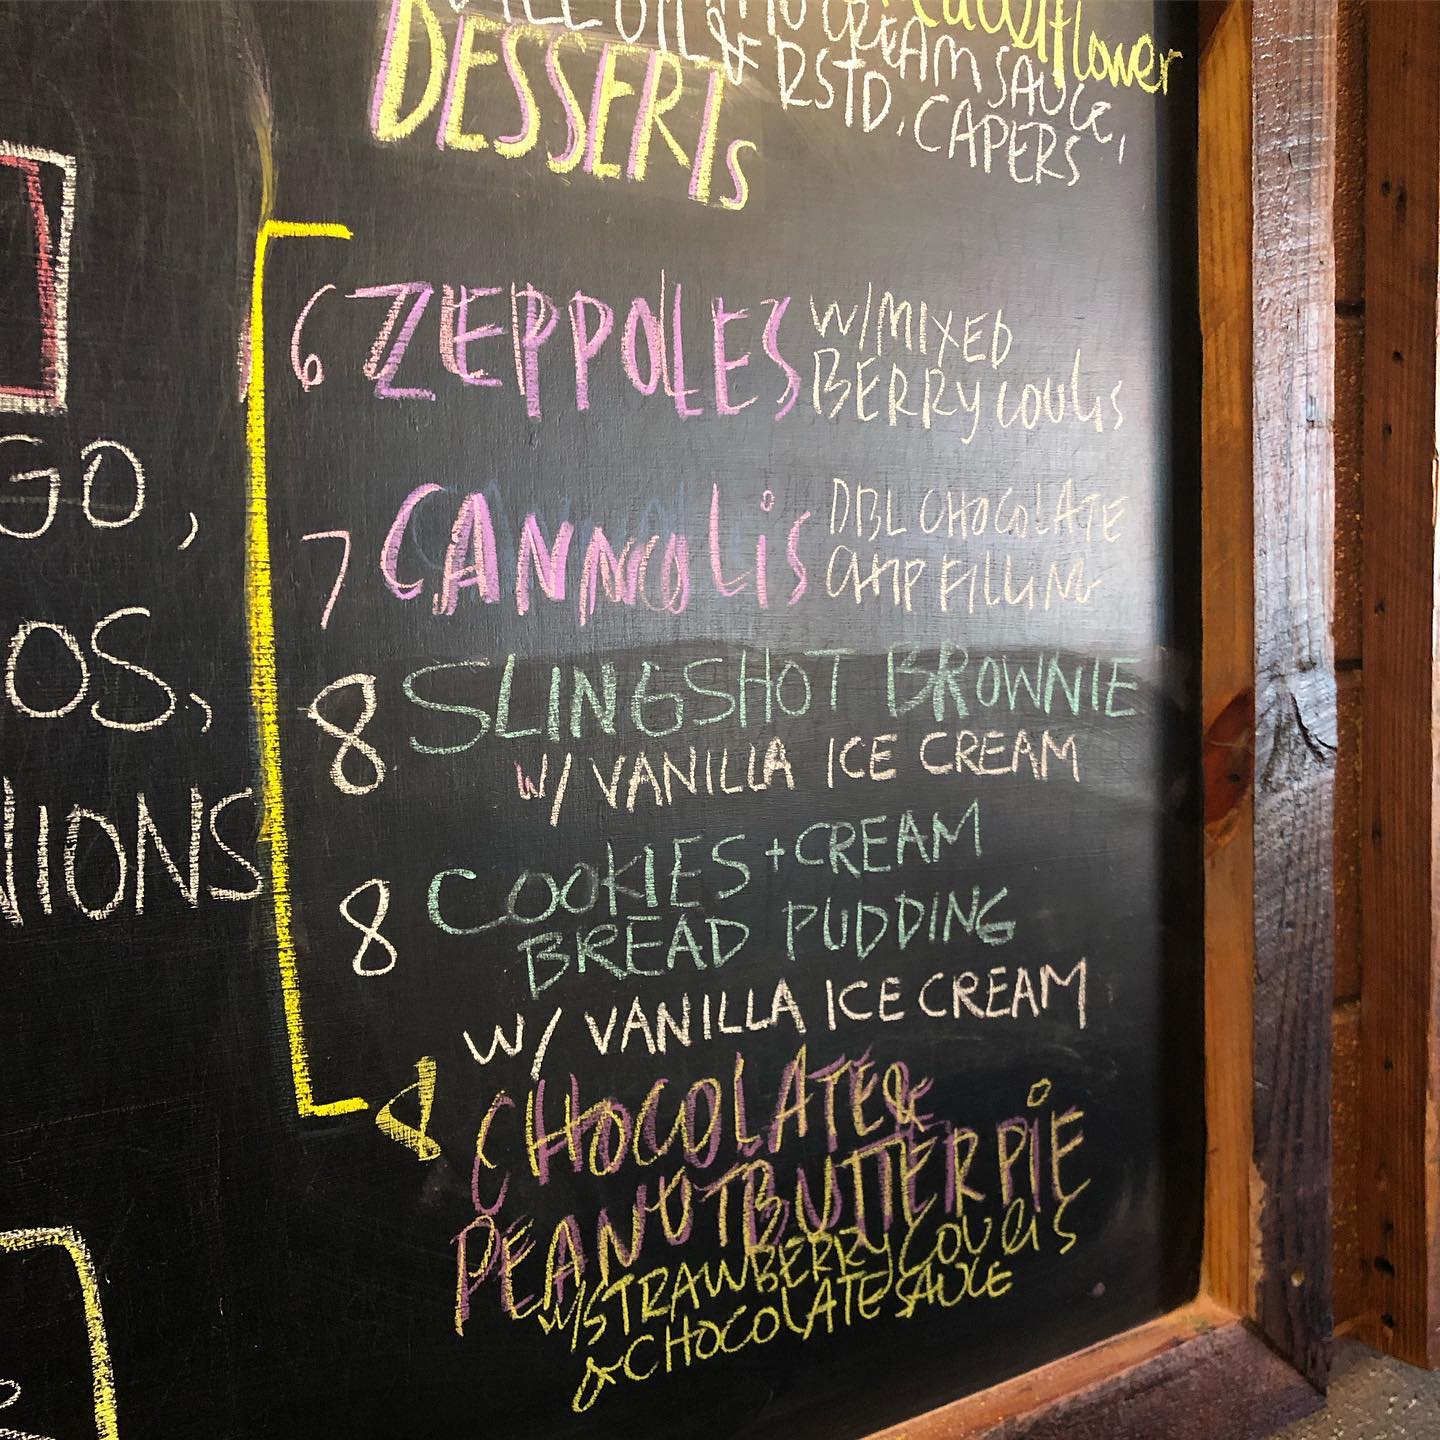 Cauliflower
CREAM SAUCE,
& RSTD. CAPERS
DESSERTs
6 ZEPPOLES W/MIXED
BERRY COULis
7 CANNOLiS DBL CHOCOLATE
CHIP FILLING
8 SLINGSHOT BROWNIE
W/ VANILLA ICE CREAM
8 COOKIES + CREAM
BREAD PUDDING
W/ VANILLA ICE CREAM
8 CHOCOLATE &
PEANUT BUTTER PiE
W/ STRAWBERRY COULIS
& CHOCOLATE SAUCE
GO,
OS,
NIONS